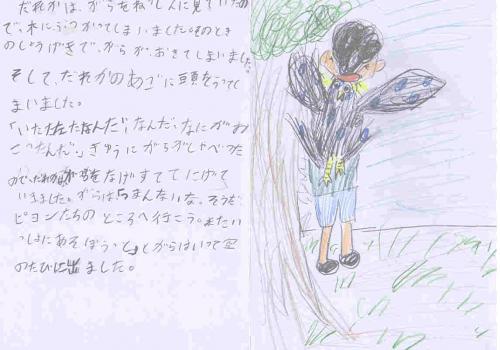 だれかは、がらをねっしんに見ていたの
で、木にぶつかってしまいました。そのとき
のしょうげきで、がらが、おきてしまいました
そして、だれかのあごに頭をうって
しまいました。
「いたたたなんだ、なんだ、なにがお
こったんだ。」きゅうにがらがしゃべった
ので、だれかは をなげすててにげて
いきました。がらは「つまんないな、そうだ
ピヨンたちのところへ行こう。またい
っしょにあそぼうっと。」とがらはいって
のたびに出ました。